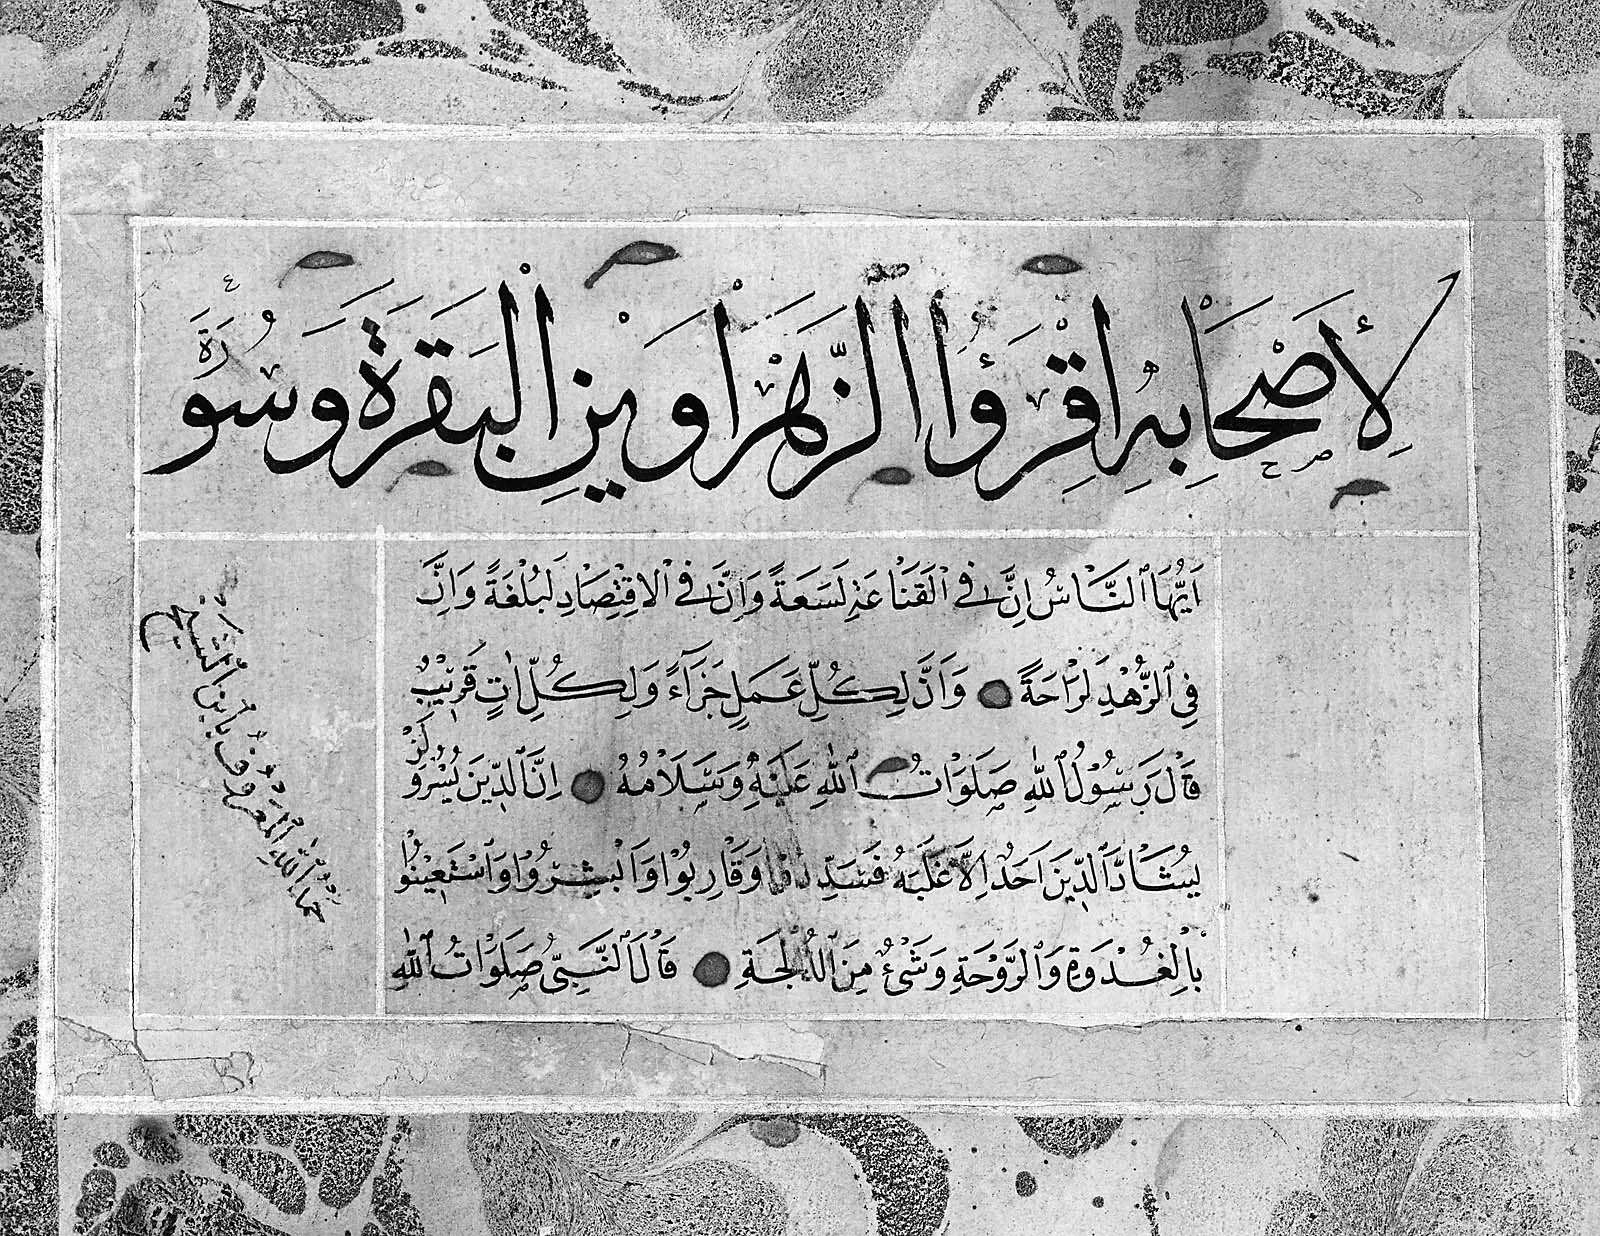 لِأَصْحَابِهِ اقْرَؤُا الزَّهْرَاوَيْنِ الْبَقَرَةَ وَسُورَةَ
اَيُّهَا النَّاسُ اِنَّ فِي الْقَنَاعَةِ لَسَعَةً وَاِنَّ فِي الْاِقْتِصَادِ لَبُلْغَةً وَاِنَّ
فِي الزُّهْدِ لَرَاحَةً وَاَنَّ لِكُلِّ عَمَلٍ جَزَآءً وَلِكُلِّ اٰتٍ قَرِيْبٌ
قَالَ رَسُوْلُ اللّٰهِ صَلَوَاتُ اللّٰهِ عَلَيْهِ وَسَلَامُهُ اِنَّ الدِّيْنَ يُسْرٌ وَلَنْ
يُشَادَّ الدِّيْنَ اَحَدٌ اِلَّا غَلَبَهُ فَسَدِّدُوْا وَقَارِبُوْا وَاَبْشِرُوْا وَاسْتَعِيْنُوْا
بِالْغُدْوَةِ وَالرَّوْحَةِ وَشَىْءٌ مِنَ الدُّلْجَةِ قَالَ النَّبِىُّ صَلَوَاتُ اللّٰهِ
حمد الله المعروف بابن الشيخ